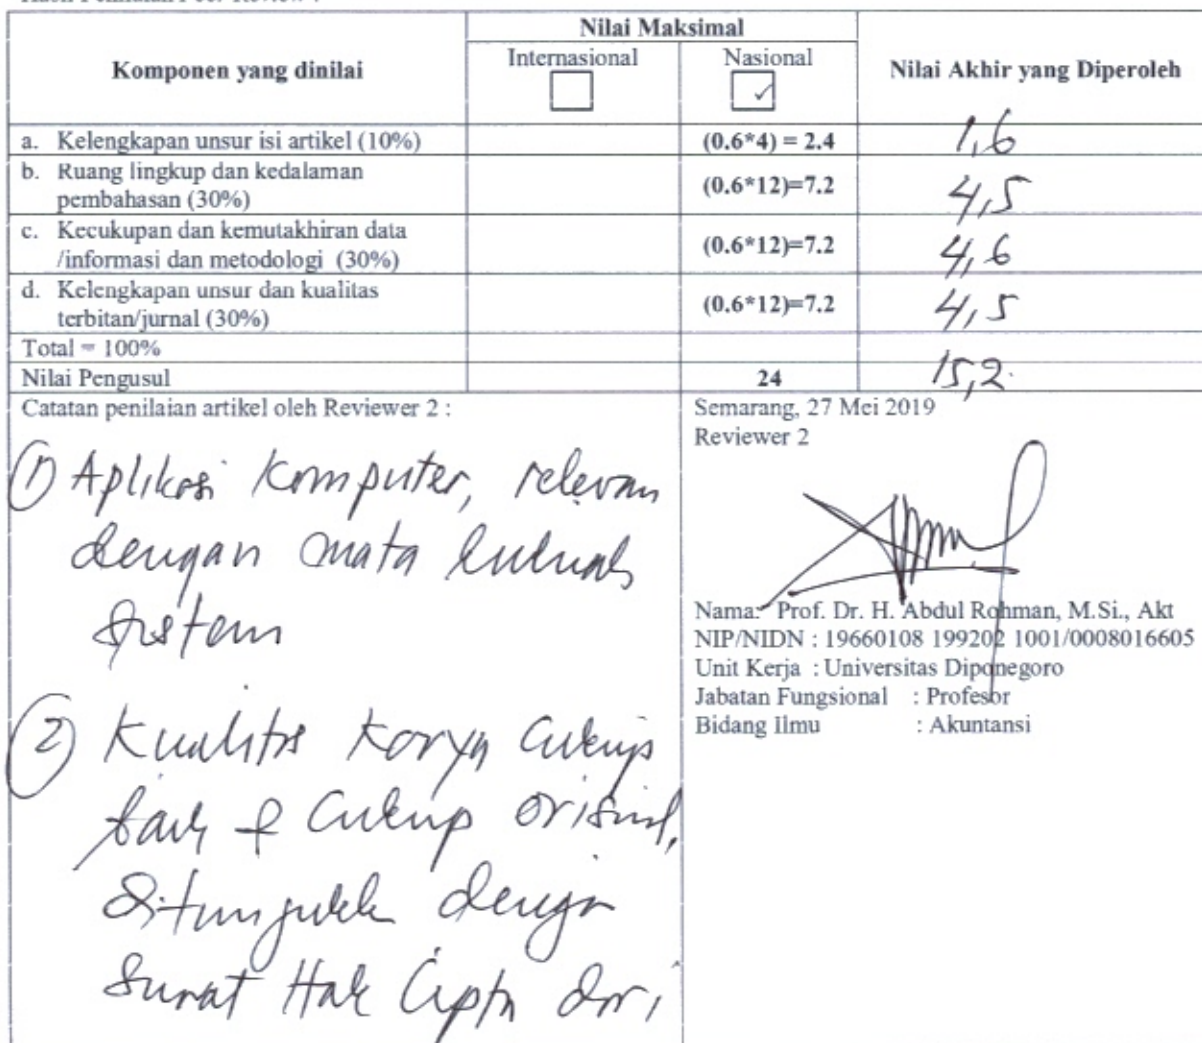 Hasil Penilaian Peer Review :
Nilai Maksimal
Komponen yang dinilai
Internasional
Nasional
Nilai Akhir yang Diperoleh
a. Kelengkapan unsur isi artikel (10%) (0.6*4) = 2.4 1,6
b. Ruang lingkup dan kedalaman
pembahasan (30%) (0.6*12)=7.2 4,5
c. Kecukupan dan kemutakhiran data
/informasi dan metodologi (30%) (0.6*12)=7.2 4,6
d. Kelengkapan unsur dan kualitas
terbitan/jurnal (30%) (0.6*12)=7.2 4,5
Total = 100%
Nilai Pengusul 24 15,2
Catatan penilaian artikel oleh Reviewer 2 :
① Aplikasi Komputer, relevan
dengan mata kuliah
sistem
② Kualitas Karya Cukup
baik & Cukup orisinil,
ditunjukk dengan
Surat Hak Cipta dari
Semarang, 27 Mei 2019
Reviewer 2
Nama: Prof. Dr. H. Abdul Rohman, M.Si., Akt
NIP/NIDN : 19660108 199202 1001/0008016605
Unit Kerja : Universitas Diponegoro
Jabatan Fungsional : Profesor
Bidang Ilmu : Akuntansi